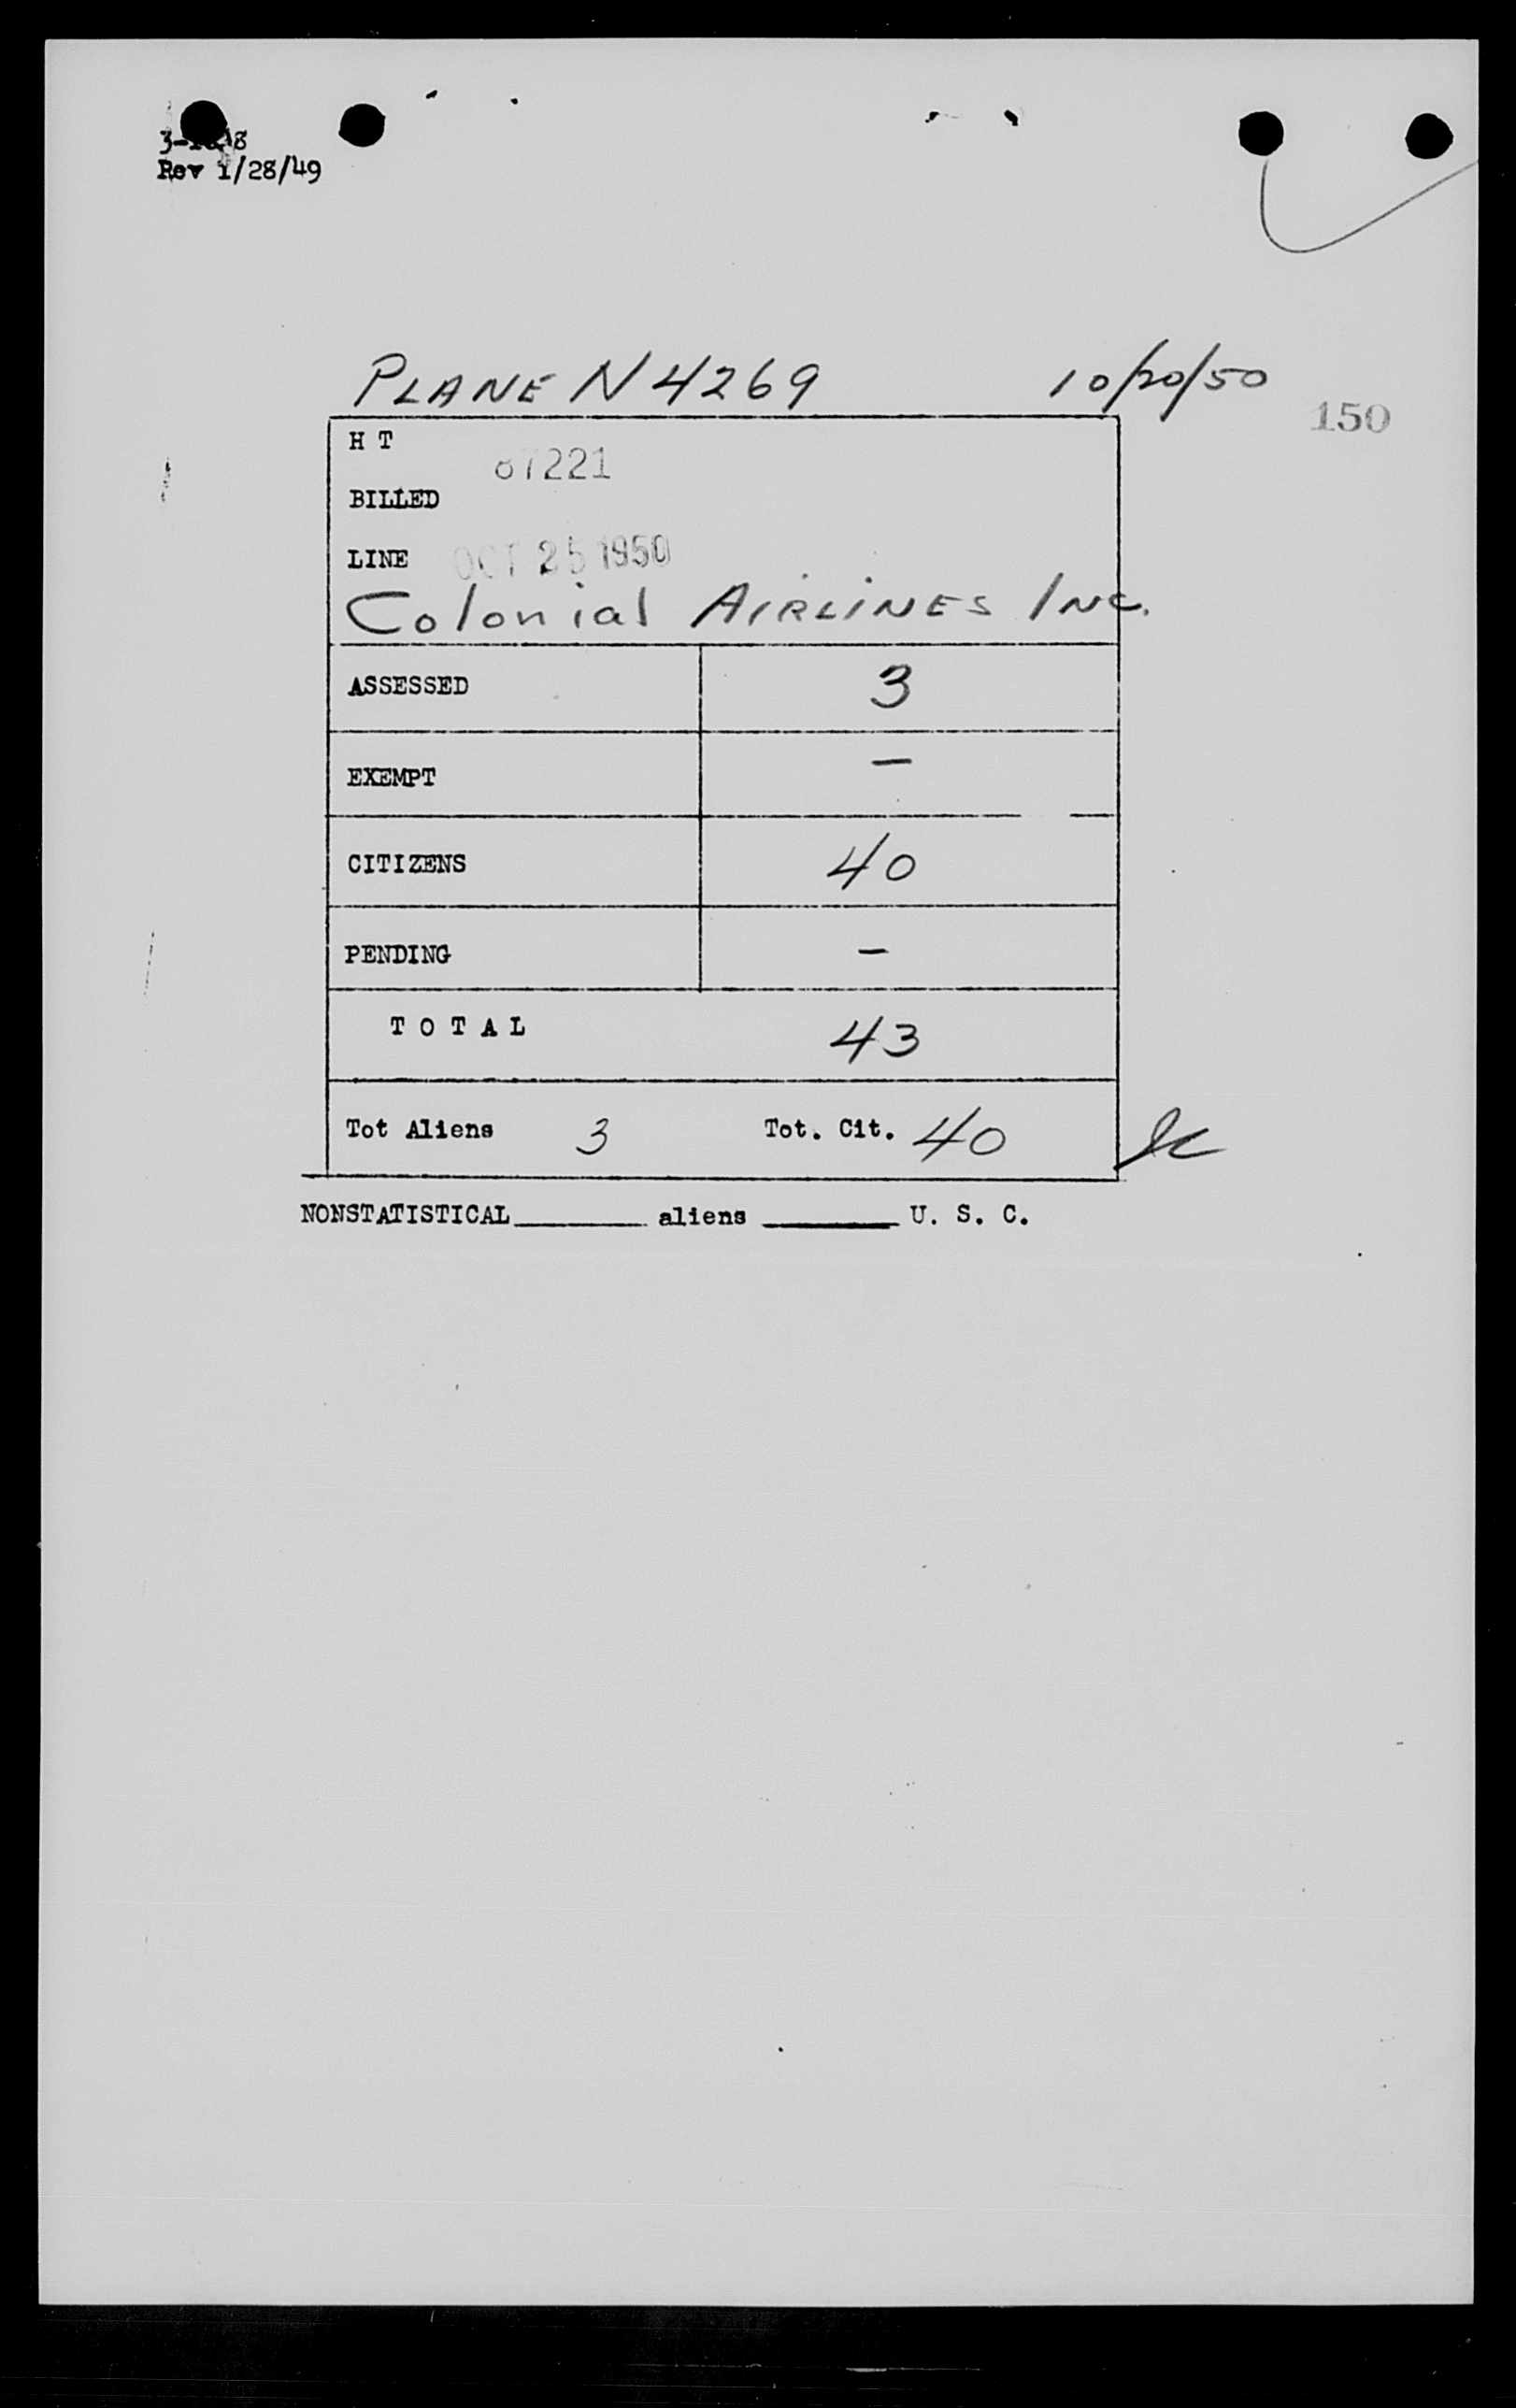 Rev 1/28/49
PLANE N4269 10/20/50
150
H T
87221
BILLED
LINE OCT 25 1950
Colonial AIRLINES INC.
ASSESSED 3
EXEMPT —
CITIZENS 40
PENDING —
T O T A L 43
Tot Aliens 3 Tot. Cit. 40
NONSTATISTICAL________ aliens ________ U. S. C.